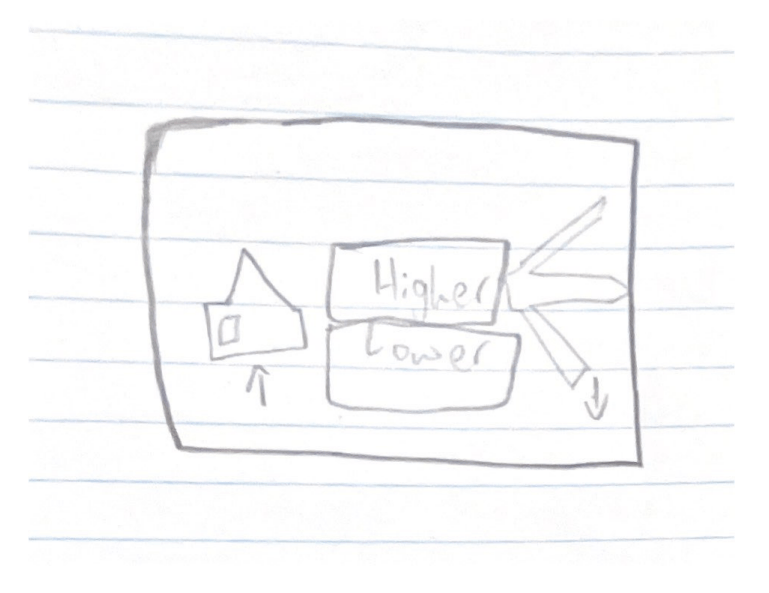 Higher
Lower